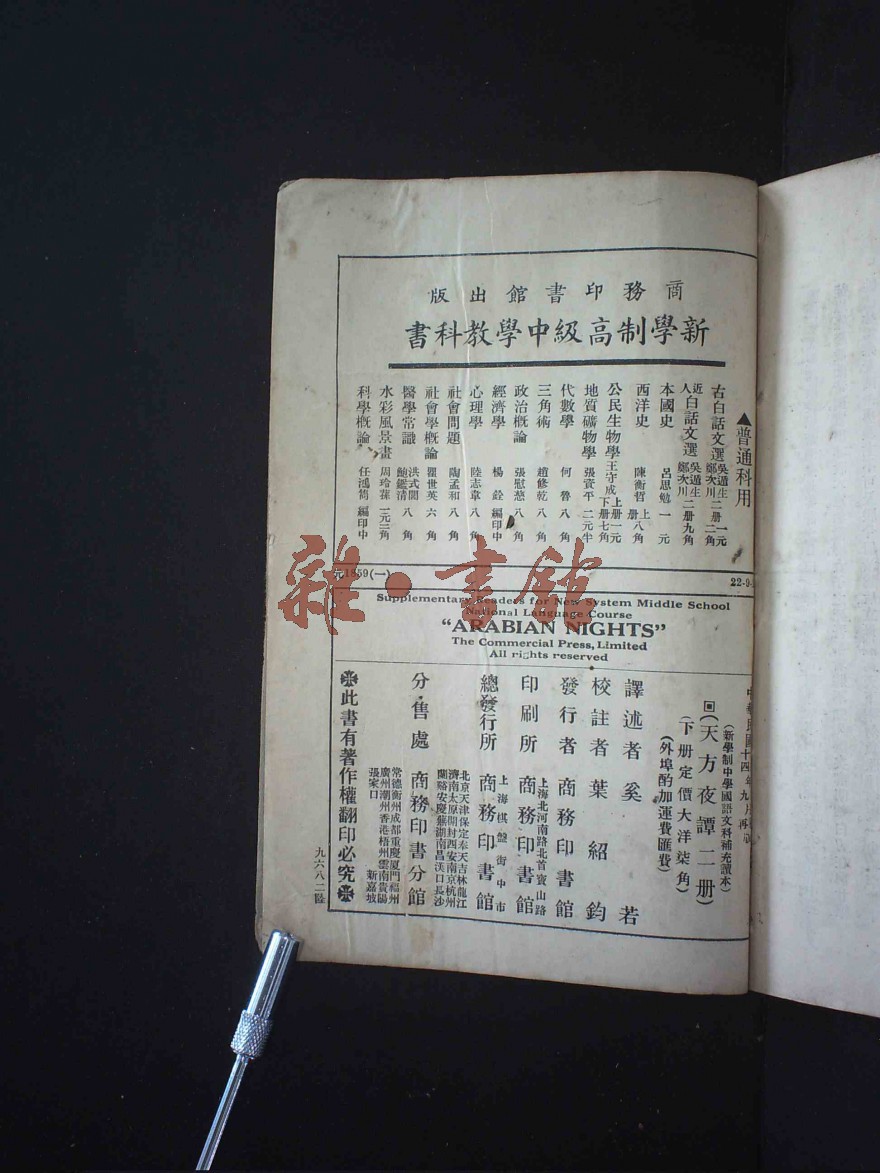 商務印書館出版
新學制高級中學教科書
▲普通科用
古白話文選 吳遁生 鄭次川 二册 一元二角
近人白話文選 吳遁生 鄭次川 二册九角
本國史 呂思勉 一元
西洋史 陳衡哲 上册八角
公民生物學 王守成 上册一元 下册七角
地質礦物學 張資平 二元半
代數學 何魯 八角
三角術 趙修乾 八角
政治概論 張慰慈 八角
經濟學 楊銓 編印中
心理學 陸志韋 八角
社會問題 陶孟和 八角
社會學概論 瞿世英 六角
醫學常識 洪式閭 鮑鑑清 八角
水彩風景畫 周玲蓀 一元二角
科學概論 任鴻雋 編印中
元1859(一)
22-9-
Supplementary Readers for New System Middle School
National Language Course
"ARABIAN NIGHTS"
The Commercial Press, Limited
All rights reserved
中華民國十四年九月再版
(新學制中學國語文科補充讀本)
(天方夜譚二册)
(下册定價大洋柒角)
(外埠酌加運費匯費)
譯述者 奚若
校註者 葉紹鈞
發行者 商務印書館
印刷所 上海北河南路北首寶山路 商務印書館
總發行所 上海棋盤街中市 商務印書館
分售處 商務印書分館
北京天津保定奉天吉林龍江
濟南太原開封西安南京杭州
蘭谿安慶蕪湖南昌漢口長沙
常德衡州成都重慶厦門福州
廣州潮州香港梧州雲南貴陽
張家口 新嘉坡
※此書有著作權翻印必究※
九六八二
雜·書館